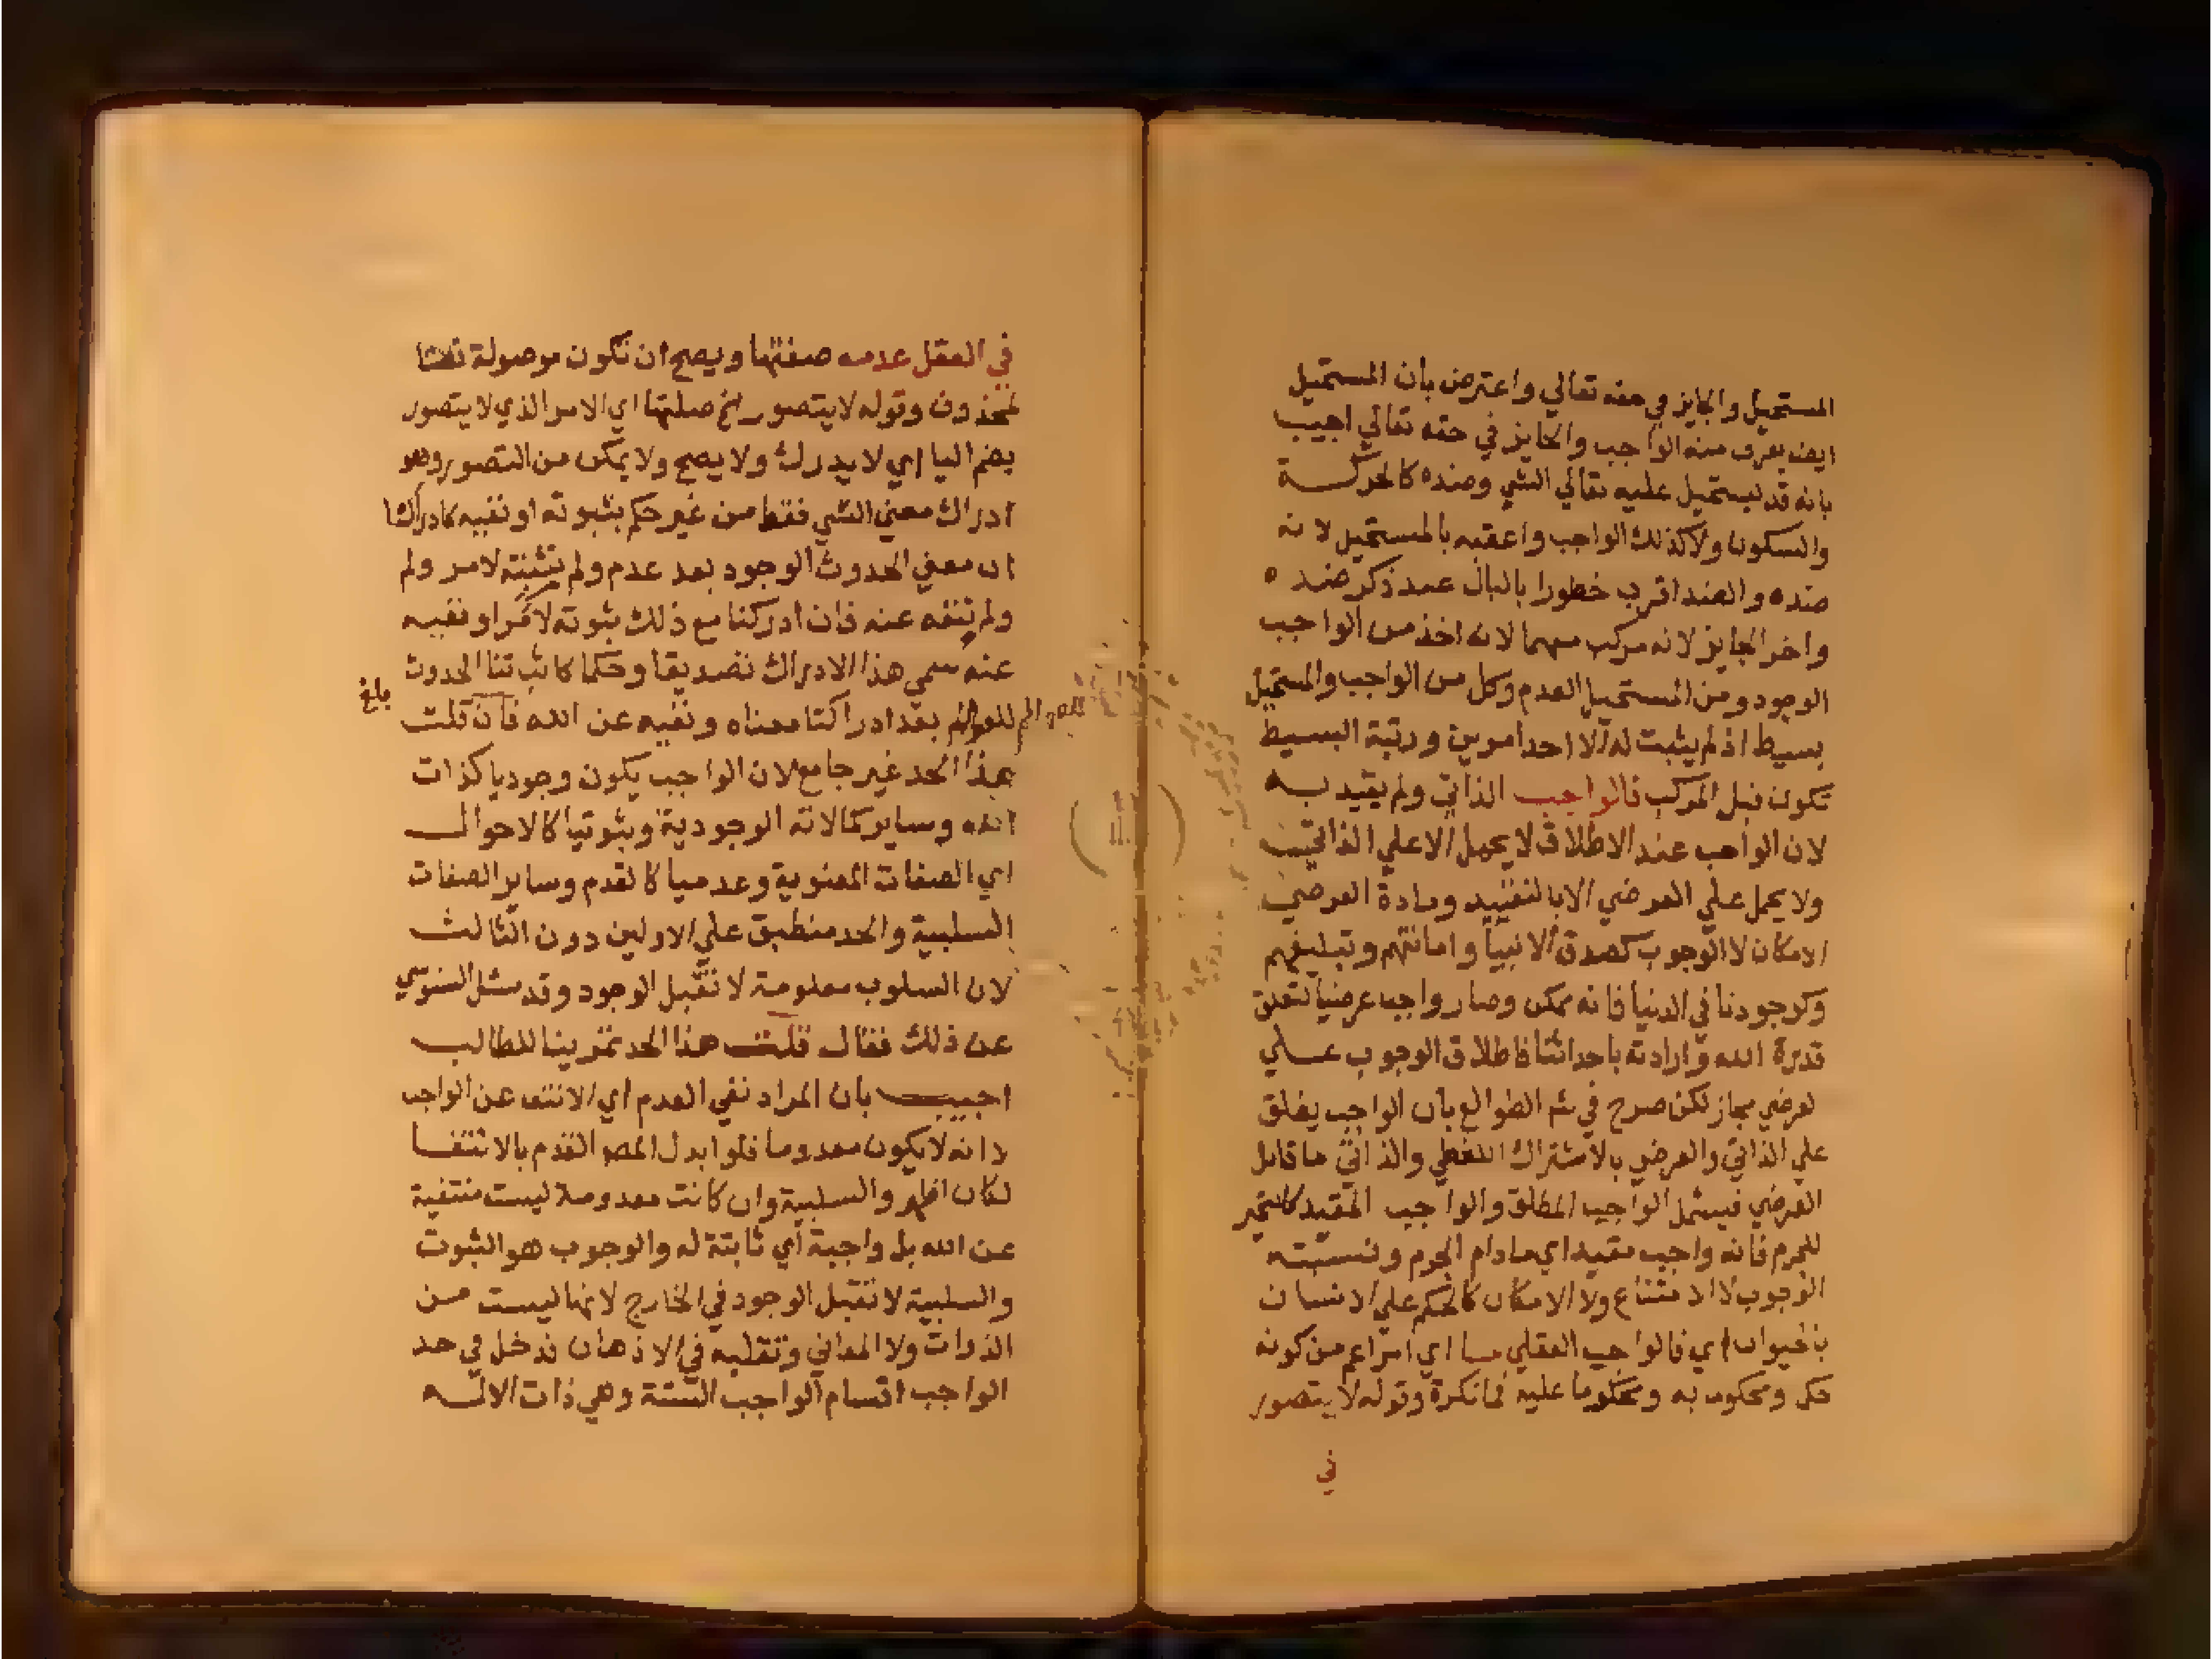 المستحيل والجايز في حقه تعالي واعترض بان المستحيل
ايضا يعرف منه الواجب والجايز في حقه تعالي اجيب
بانه قد يستحيل عليه تعالي الشي وضده كالحركة
والسكون ولا كذلك الواجب واعقبه بالمستحيل لانه
ضده والضد اقرب خطورا بالبال عند ذكر ضده
واخر الجايز لانه مركب منهما لانه اخذ من الواجب
الوجود ومن المستحيل العدم وكل من الواجب والمستحيل
بسيط اذ لم يثبت له الا احد امرين ورتبة البسيط
تكون قبل المركب فالواجب الذاتي ولم يقيد به
لان الواجب عند الاطلاق لا يحمل الا علي الذاتي
ولا يحمل علي العرضي الا بالتقييد ومادة العرضي
الامكان لا الوجوب كصدق الانبيا وامانتهم وتبليغهم
وكوجودنا في الدنيا فانه ممكن وصار واجبا عرضيا لتعلق
قدرة الله وارادته باحداثنا فاطلاق الوجوب علي
لعرضي مجاز لكن صرح في شم الطوالع بان الواجب يطلق
علي الذاتي والعرضي بالاشتراك اللفظي والذاتي ما قابل
العرضي فيشمل الواجب المطلق والواجب المقيد كالتحيز
للجرم فانه واجب مقيد اي ما دام الجرم ونسبته
الوجوب لا الامتناع ولا الامكان كالحكم علي الانسان
بالحيوان اي فالواجب العقلي ما اي امر اعم من كونه
حكم ومحكوم به ومحكوما عليه فما نكرة وقوله لا يتصور
في
في العقل عدمه صفتها ويصح ان تكون موصولة نعتا
لمحذوف وقوله لا يتصور الخ صلتها اي الامر الذي لا يتصور
بضم اليا اي لا يدرك ولا يصح ولا يمكن من التصور وهو
ادراك معني الشي فقط من غير حكم بثبوته او نفيه كادراكنا
ان معني الحدوث الوجود بعد عدم ولم نثبته لامر ولم
ولم ننفه عنه فان ادركنا مع ذلك ثبوته لامر او نفيه
عنه سمي هذا الادراك تصديقا وحكما كاثباتنا الحدوث
للعوالم بعد ادراكنا معناه ونفيه عن الله فان قلت
بلغ
هذا الحد غير جامع لان الواجب يكون وجوديا كذات
الله وساير كمالاته الوجودية وثبوتيا كالاحوال
اي الصفات المعنوية وعدميا كالقدم وساير الصفات
السلبية والحد منطبق علي الاولين دون الثالث
لان السلوب معلومة لا تقبل الوجود وقد مثل السنوسي
عن ذلك فقال قلت هذا الحد تمرينا للطالب
اجيب بان المراد نفي العدم اي الانتفا عن الواجب
لا انه لا يكون معدوما فلو ابدل المصم القدم بالانتفا
لكان اظهر والسلبية وان كانت معدومة ليست منتفية
عن الله بل واجبة اي ثابتة له والوجوب هو الثبوت
والسلبية لا تقبل الوجود في الخارج لانها ليست من
الذوات ولا المعاني وتقبله في الاذهان فدخل في حد
الواجب اقسام الواجب الستة وهي ذات الاله